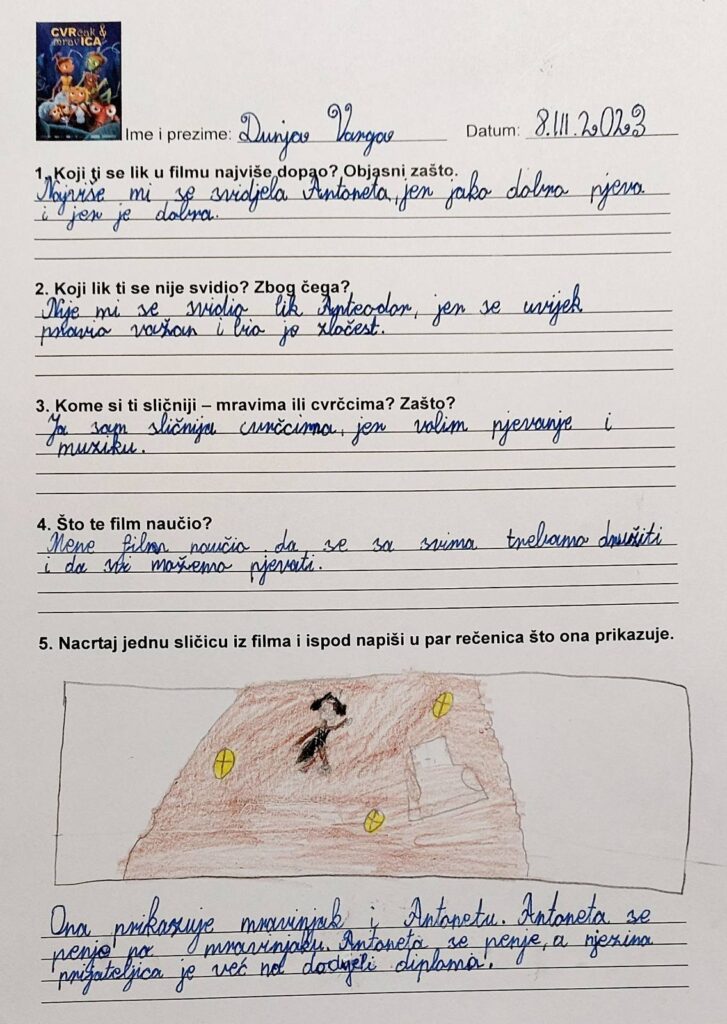 CVRčak &
mravICA
Ime i prezime: Dunja Varga Datum: 8.III.2023
1. Koji ti se lik u filmu najviše dopao? Objasni zašto.
Najviše mi se svidjela Antoneta, jer jako dobro pjeva
i jer je dobra.
2. Koji lik ti se nije svidio? Zbog čega?
Nije mi se svidio lik Anteodor, jer se uvijek
pravio važan i bio je zločest.
3. Kome si ti sličniji – mravima ili cvrčcima? Zašto?
Ja sam sličnija cvrčcima, jer volim pjevanje i
muziku.
4. Što te film naučio?
Mene film naučio da se sa svima trebamo družiti
i da svi možemo pjevati.
5. Nacrtaj jednu sličicu iz filma i ispod napiši u par rečenica što ona prikazuje.
Ona prikazuje mravinjak i Antonetu. Antoneta se
penje po mravinjaku. Antoneta se penje, a njezina
prijateljica je već na dodjeli diploma.